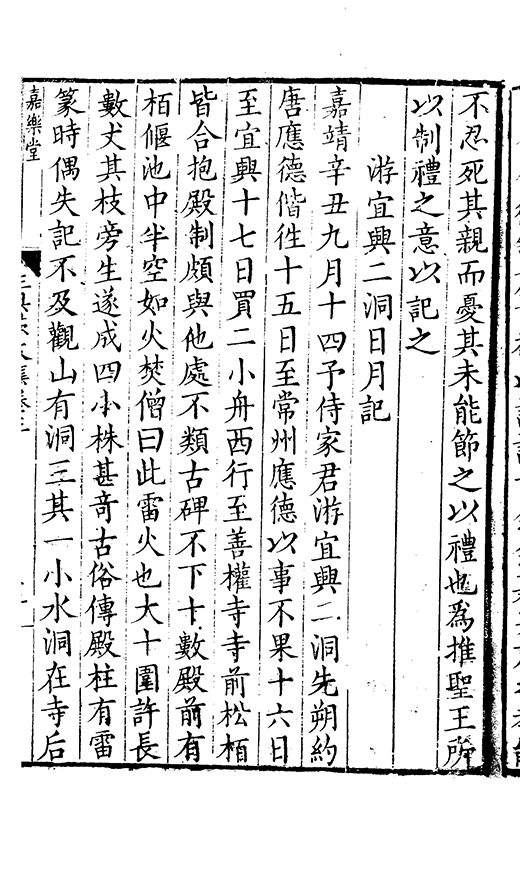 不忍死其親而憂其未能節之以禮也爲推聖王所
以制禮之意以記之
游宜興二洞日月記
嘉靖辛丑九月十四予侍家君游宜興二洞先朔約
唐應德偕徃十五日至常州應德以事不果十六日
至宜興十七日買二小舟西行至善權寺寺前松栢
皆合抱殿制頗與他處不類古碑不下十數殿前有
栢偃池中半空如火焚僧曰此雷火也大十圍許長
數丈其枝旁生遂成四小株甚奇古俗傳殿柱有雷
篆時偶失記不及觀山有洞三其一小水洞在寺后
嘉樂堂